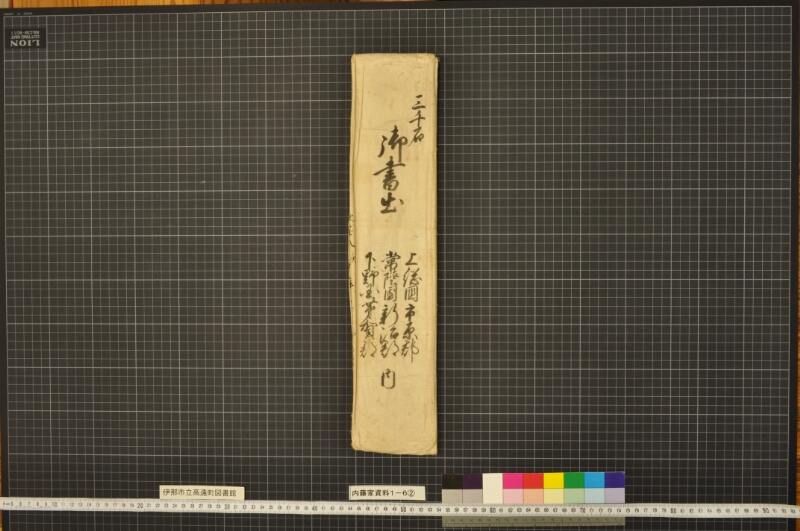 三千石
御書出
上総國市原郡
常陸國新治郡
下野國芳賀郡
内
伊那市立高遠町図書館
内藤家資料1－6②
LION